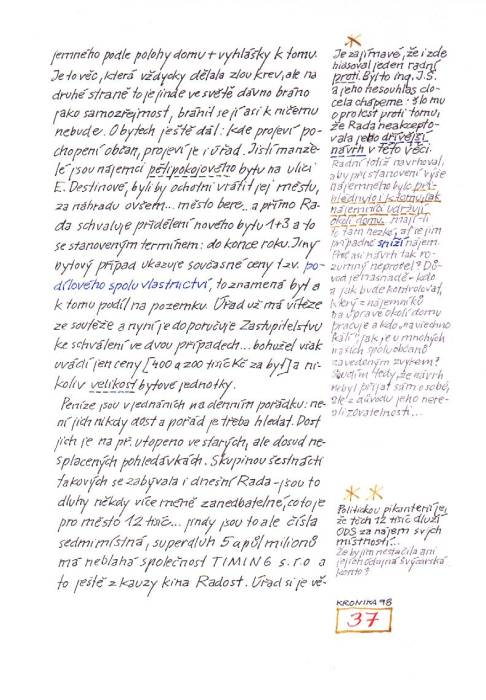 jemného podle polohy domu + vyhlášky k tomu.
Je to věc, která vždycky dělala zlou krev, ale na
druhé straně to je jinde ve světě dávno bráno
jako samozřejmost, bránit se jí asi k ničemu
nebude. O bytech ještě dál: kde projeví po-
chopení občan, projeví je i úřad. Jistí manže-
lé jsou nájemci pětipokojového bytu na ulici
E. Destinové, byli by ochotni vrátit jej městu,
za náhradu ovšem... město bere.. a přímo Ra-
da schvaluje přidělení nového bytu 1+3 a to
se stanoveným termínem: do konce roku. Jiný
bytový případ ukazuje současné ceny tzv. po-
dílového spoluvlastnictví, to znamená byt a
k tomu podíl na pozemku. Úřad už má vítěze
ze soutěže a nyní je doporučuje Zastupitelstvu
ke schválení ve dvou případech... bohužel však
uvádí jen ceny [400 a 200 tisíc Kč za byt] a ni-
koliv velikost bytové jednotky.
Peníze jsou v jednáních na denním pořádku: ne-
ní jich nikdy dost a pořád je třeba hledat. Dost
jich je na př. utopeno ve starých, ale dosud ne-
splacených pohledávkách. Skupinou šestnácti
takových se zabývala i dnešní Rada - jsou to
dluhy někdy více méně zanedbatelné, co to je
pro město 12 tisíc... jindy jsou to ale čísla
sedmimístná, superdluh 5 a půl milionů
má neblahá společnost TIMING s.r.o a
to ještě z kauzy kina Radost. Úřad si je vě-
Je zajímavé, že i zde
hlasoval jeden radní
proti. Byl to ing. J.S.
a jeho nesouhlas do-
cela chápeme: šlo mu
o protest proti tomu,
že Rada neakcepto-
vala jeho dřívější
návrh v této věci.
Radní totiž navrhoval,
aby při stanovení výše
nájemného bylo při-
hlédnuto i k tomu, jak
nájemníci udržují
okolí domu. Mají-li
to tam hezké, ať se jim
případně sníží nájem.
Proč asi návrh tak ro-
zumný neprošel? Dů-
vod je nasnadě - kdo
a jak bude kontrolovat,
který z nájemníků
na úpravě okolí domu
pracuje a kdo na všechno
kašle, jak je u mnohých
našich spoluobčanů
zavedeným zvykem?
Soudím tedy, že návrh
nebyl přijat sám o sobě,
ale z důvodu jeho nere-
alizovatelnosti...
Politickou pikanterií je,
že těch 12 tisíc dluží
ODS za nájem svých
místností...
Že by jim nestačila ani
jejich údajná švýcarská
konta?
KRONIKA 98
37